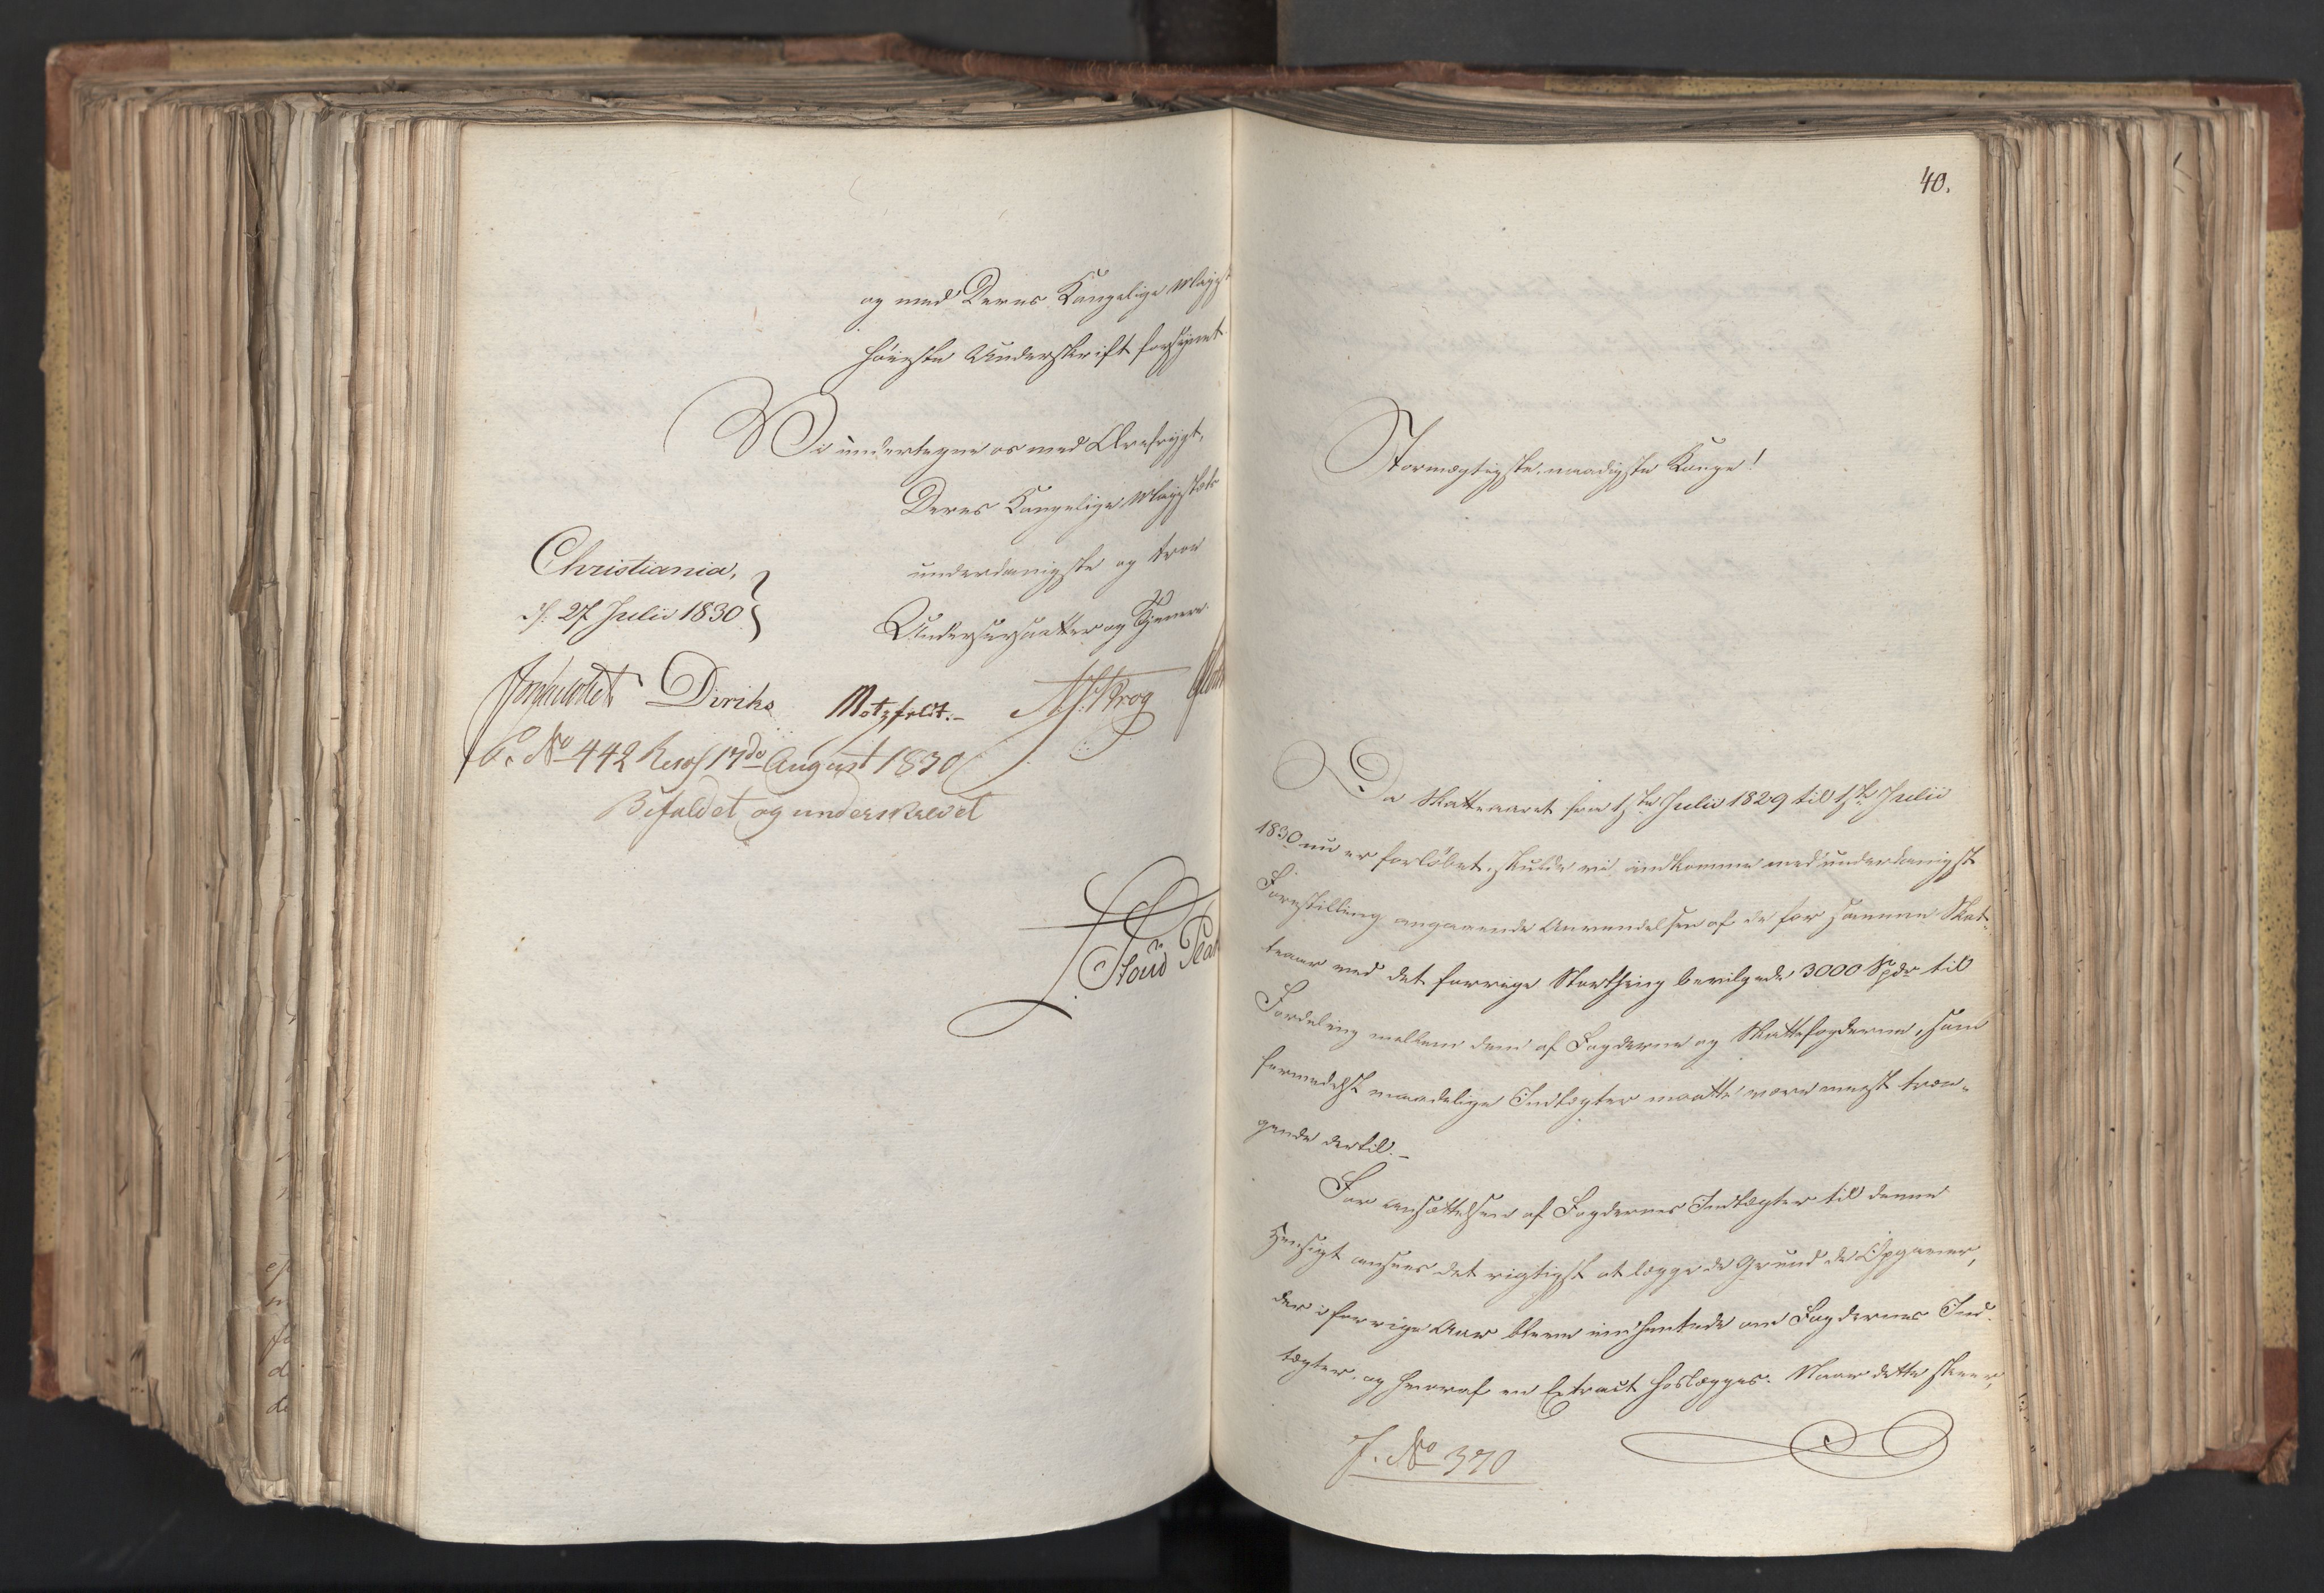 og med Deres Kongelige Majest
høieste Underskrift forsynet
Vi undertegne os med Ærefrygt,
Deres Kongelige Majestæts
underdanigste og troe
Undersaatter og Tjenere.
Christiania,
d. 27 Julii 1830
Diriks Motzfeldt.-
P. No 442 Resol 17de August 1830
Bifaldet og underskrevet
40.
Stormægtigste, naadigste Konge!
Da Skatteaaret fra 1ste Julii 1829 til 1ste Julii
1830 nu er forløbet, skulde vi indkomme med underdanigst
Forestilling angaaende Anvendelsen af de for samme Skat-
teaar ved det forrige Storthing bevilgede 3000 Spdr til
Fordeling mellem dem af Fogderne og Skattefogderne, som
formedelst maadelige Indtægter maatte være meest træn-
gende dertil.-
For Ansættelsen af Fogdernes Indtægter til denne
Hensigt ansees det rigtigst at lægge de Grund de Opgaver,
der i forrige Aar bleve indhentede om Fogdernes Ind-
tægter, og hvoraf en Extract hoslægges. Naar dette skeer,
J. No 370